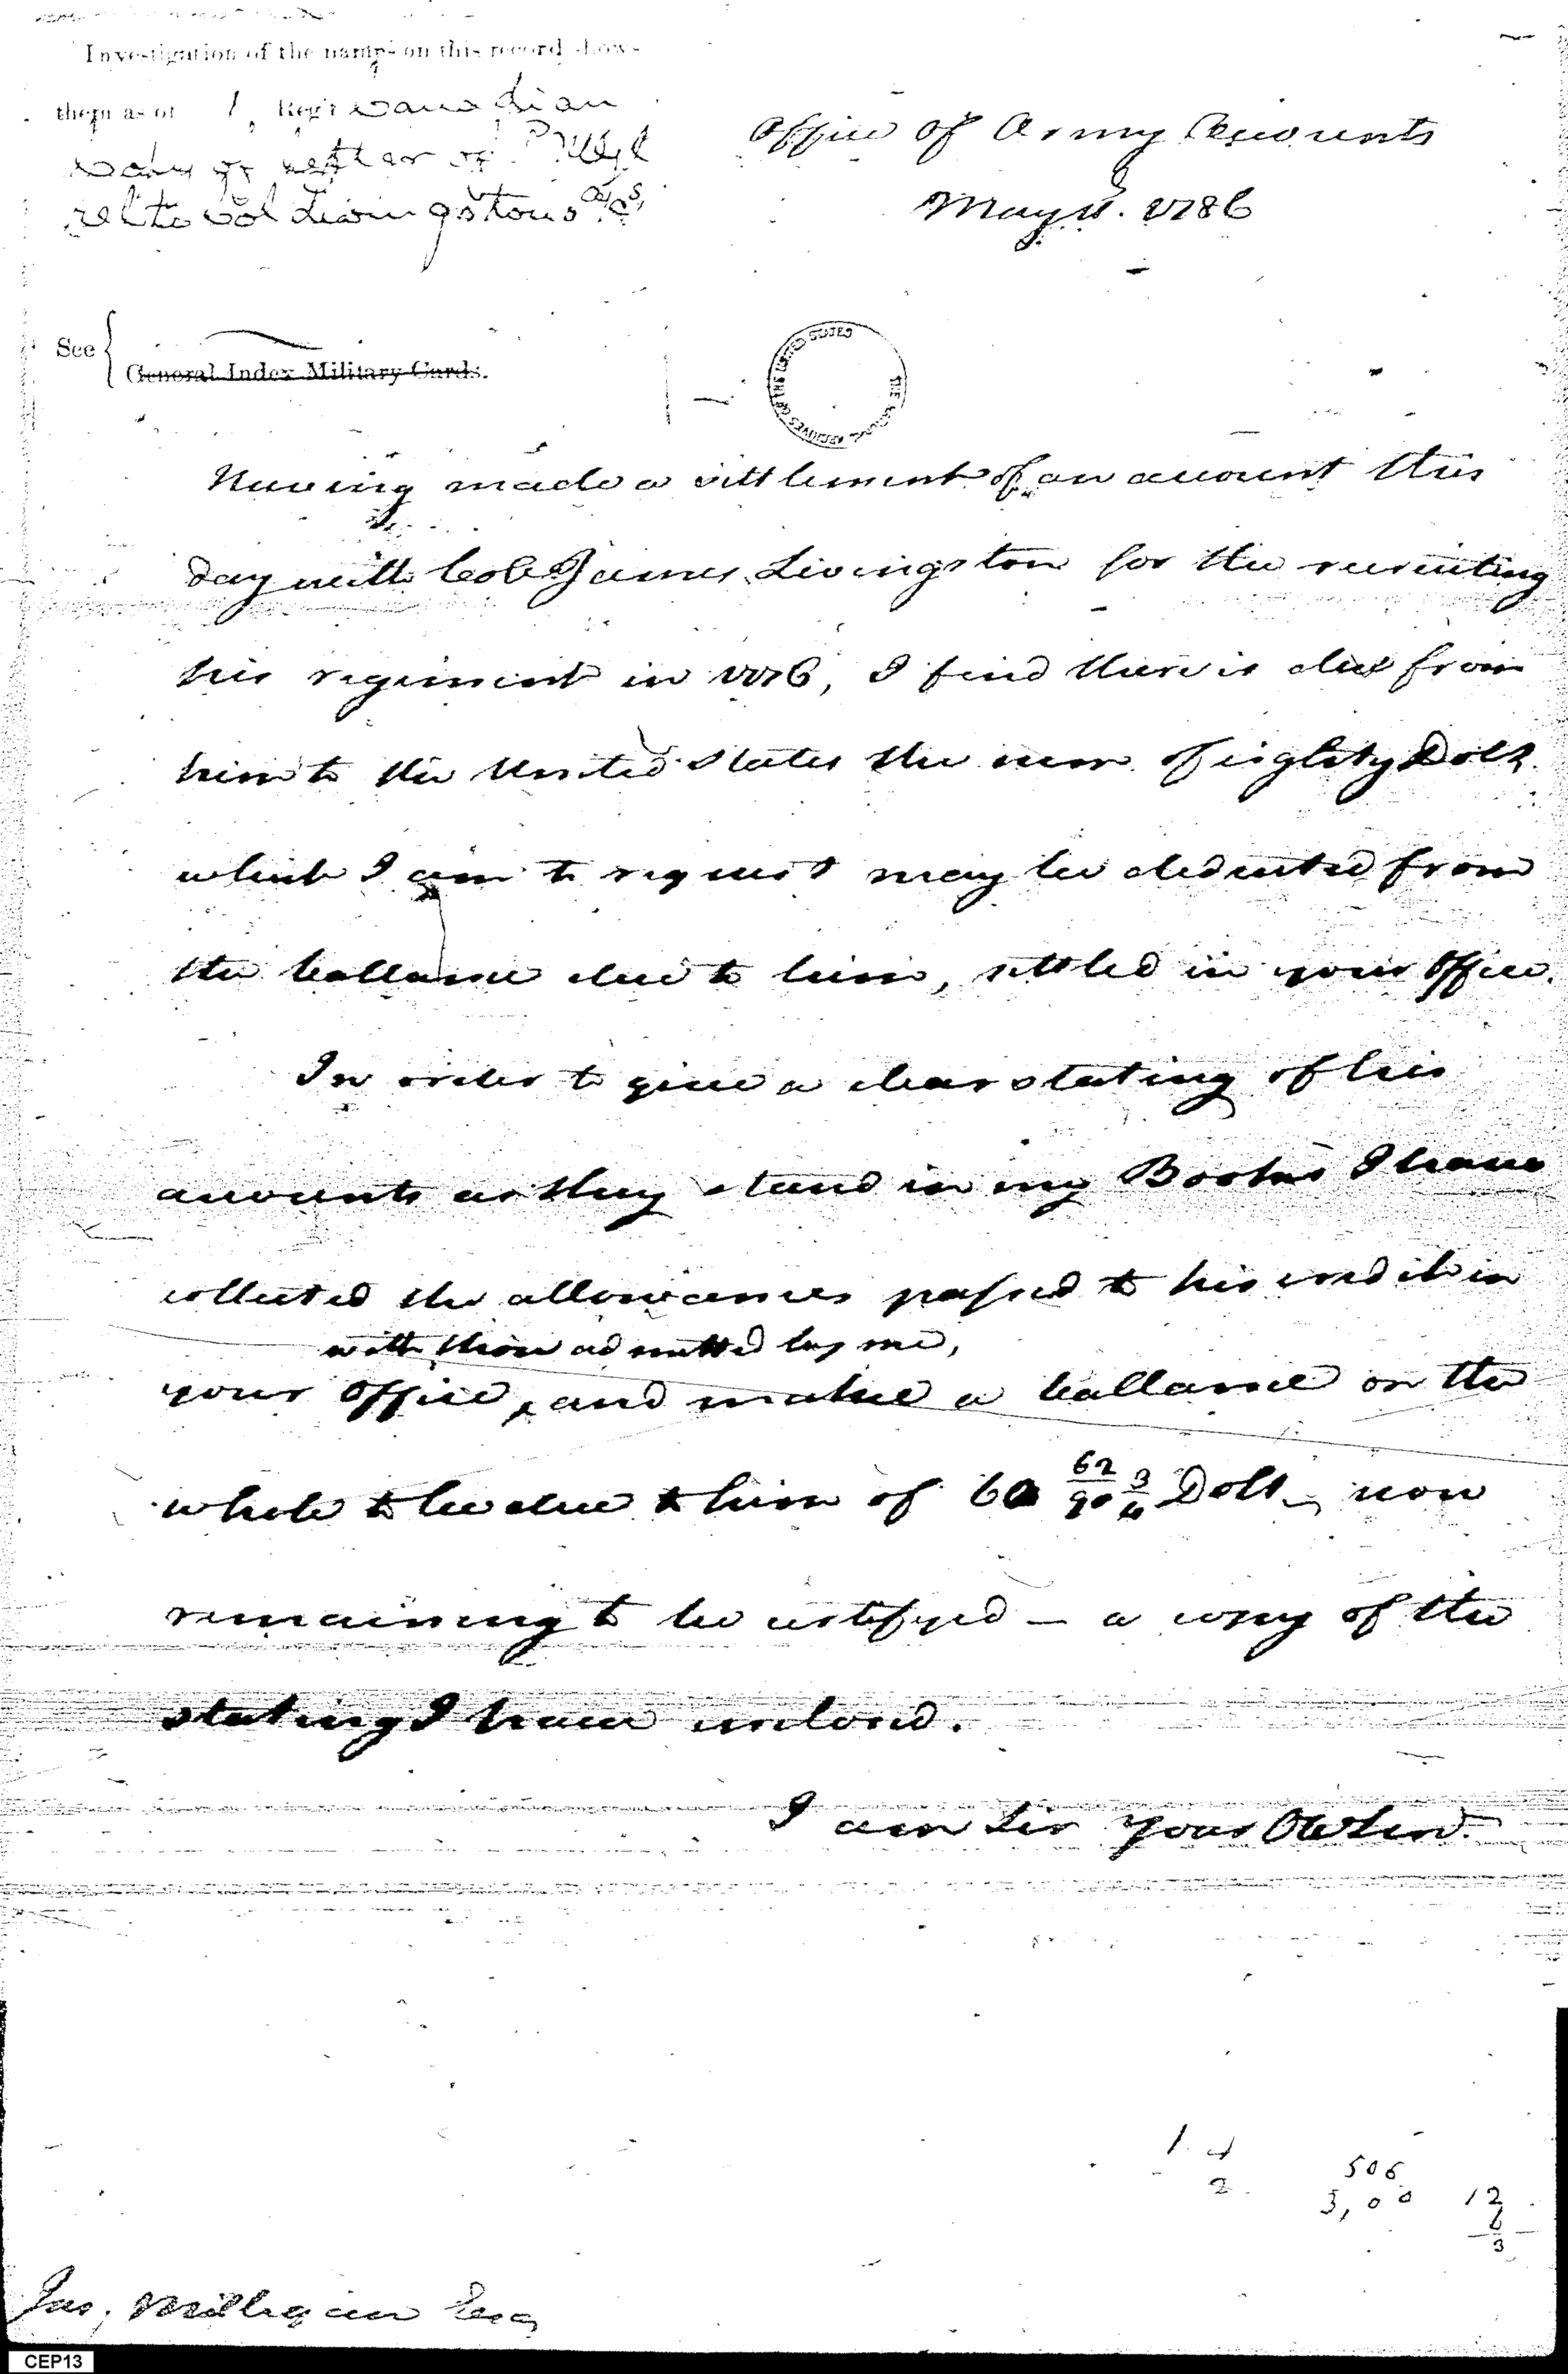 Investigation of the names on this record shows
them as of 1, Reg't Canadian
Copy of letter of
rel. to Col Livingston's a/cs,
Office of Army Accounts
May 11. 1786
See
General Index Military Cards.
THE NATIONAL ARCHIVES OF THE UNITED STATES
Having made a settlement of an account this
day with Col. James Livingston for the recruiting
his regiment in 1776, I find there is due from
him to the United States the sum of eighty Dolls.
which I am to request may be deducted from
the ballance due to him, settled in your Office.
In order to give a clear stating of his
accounts as they stand in my Books I have
collected the allowances passed to his credit in
with those admitted by me,
your Office, and make a ballance on the
whole to be due to him of 60 62/90 Dolls. now
remaining to be certifyed – a copy of the
stating I have inclosed.
I am Sir your Ob Serv.
1 4
2
506
3,00
12
6
3
Jas. Milligan Esq
CEP13